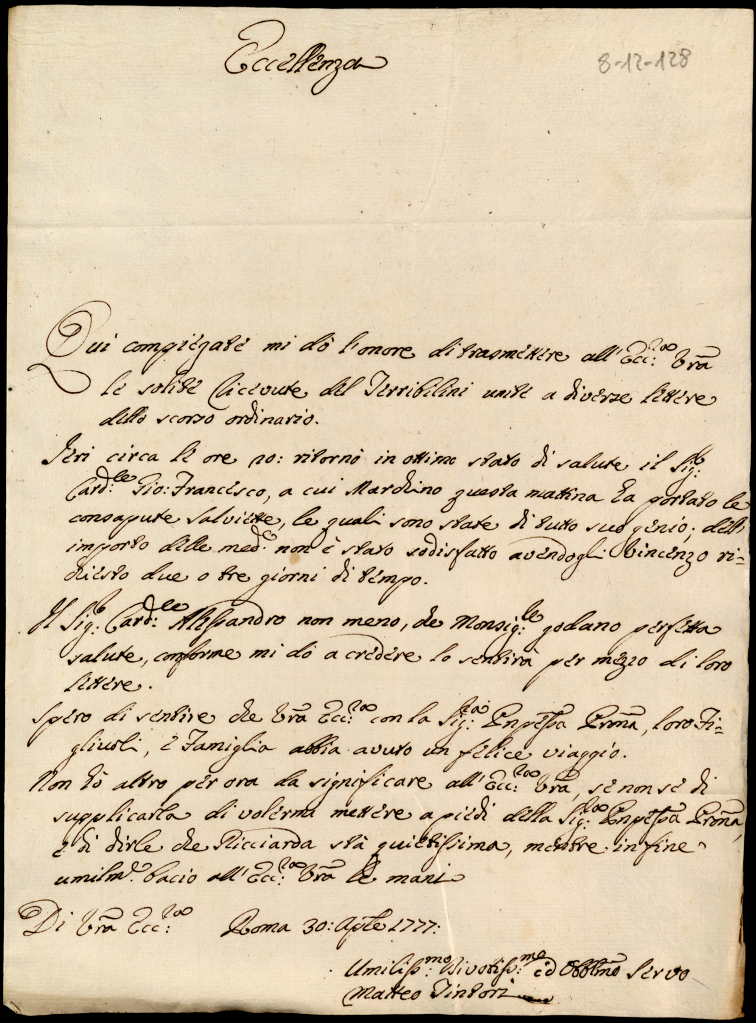 Eccellenza
8-12-128
Qui compiegate mi dò l'onore di trasmettere all'Ecc:za Vrã
le solite Ricevute del Terribilini unite a diverse lettere
dello scorso ordinario.
Jeri circa le ore 20: ritornò in ottimo stato di salute il Sig:r
Card:le Gio: Francesco, a cui Marchino questa mattina ha portato le
consapute salviette, le quali sono state di tutto suo genio; dell'
importo delle med:e non è stato sodisfatto avendogli Vincenzo ri=
chiesto due o tre giorni di tempo.
Il Sig:r Card:le Alessandro non meno, che Monsig:re godano perfetta
salute, conforme mi dò a credere lo sentirà per mezzo di loro
lettere.
Spero di sentire che Vrã Ecc:za con la Sig:ra Pnpessa Prõna, loro Fi=
gliuoli, e Famiglia abbia avuto un felice viaggio.
Non hò altro per ora da significare all'Ecc:za Vrã, se non se di
supplicarla di volermi mettere a piedi della Sig:ra Pnpessa Prõna,
e di dirle che Ricciarda stà quietissima, mentre infine
umilm:e bacio all'Ecc:za Vrã le mani
Di Vrã Ecc:za Roma 30: Aple 1777:
Umiliss:mo Divotiss:mo ed Obblmo Servo
Matteo Tintori